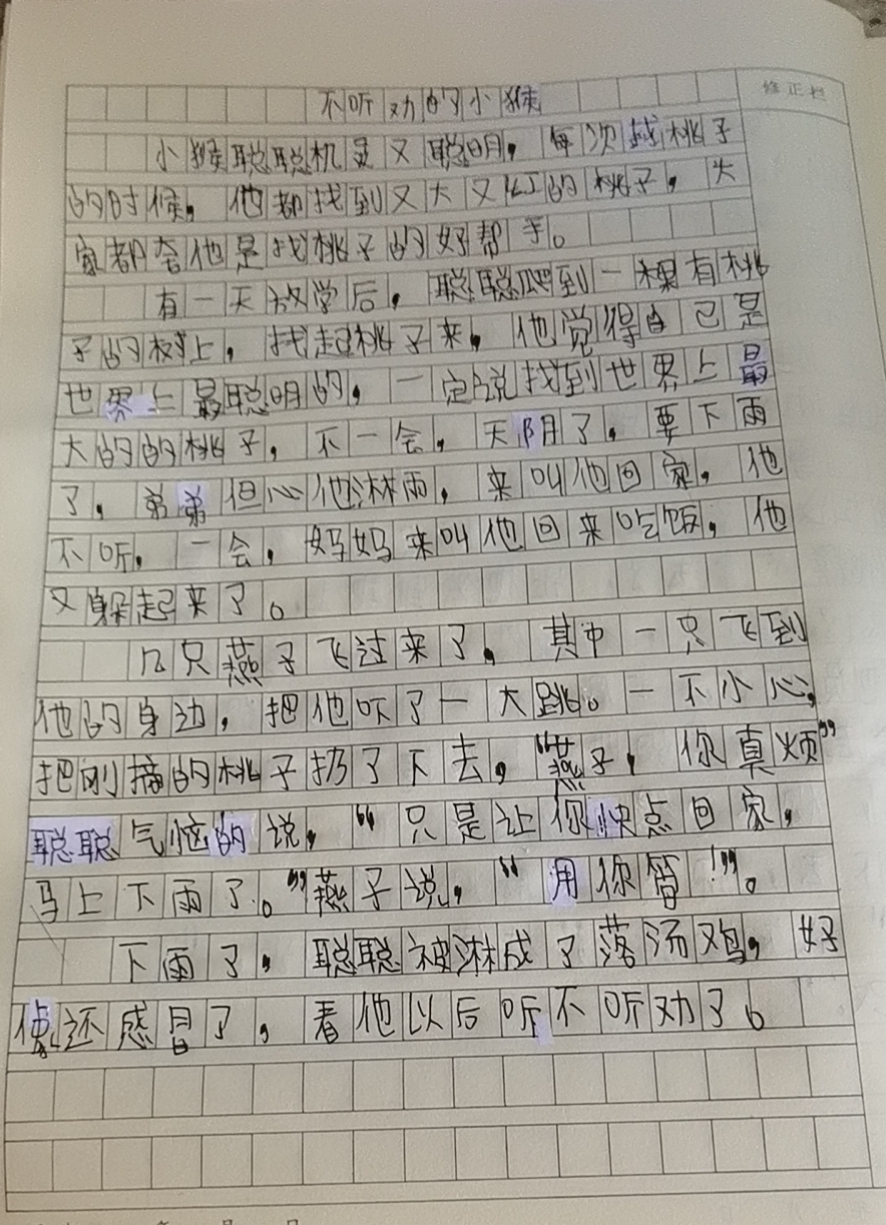 修正栏
不听劝的小猴
小猴聪聪机灵又聪明，每次找桃子
的时候，他都找到又大又红的桃子，大
家都夸他是找桃子的好帮手。
有一天放学后，聪聪爬到一棵有桃
子的树上，找起桃子来，他觉得自己是
世界上最聪明的，一定能找到世界上最
大的的桃子，不一会，天阴了，要下雨
了，弟弟但心他淋雨，来叫他回家，他
不听，一会，妈妈来叫他回来吃饭，他
又躲起来了。
几只燕子飞过来了，其中一只飞到
他的身边，把他吓了一大跳。一不小心，
把刚摘的桃子扔了下去，“燕子，你真烦”
聪聪气恼的说，“只是让你快点回家，
马上下雨了。”燕子说，“用你管！”。
下雨了，聪聪被淋成了落汤鸡，好
像还感冒了，看他以后听不听劝了。